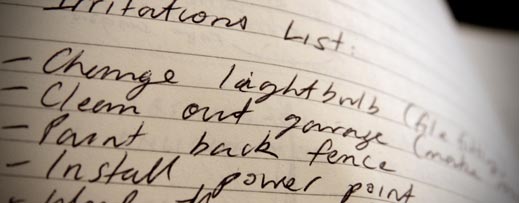 Irritations List:
- Change lightbulb
- Clean out garage
- Paint back fence
- Install power point